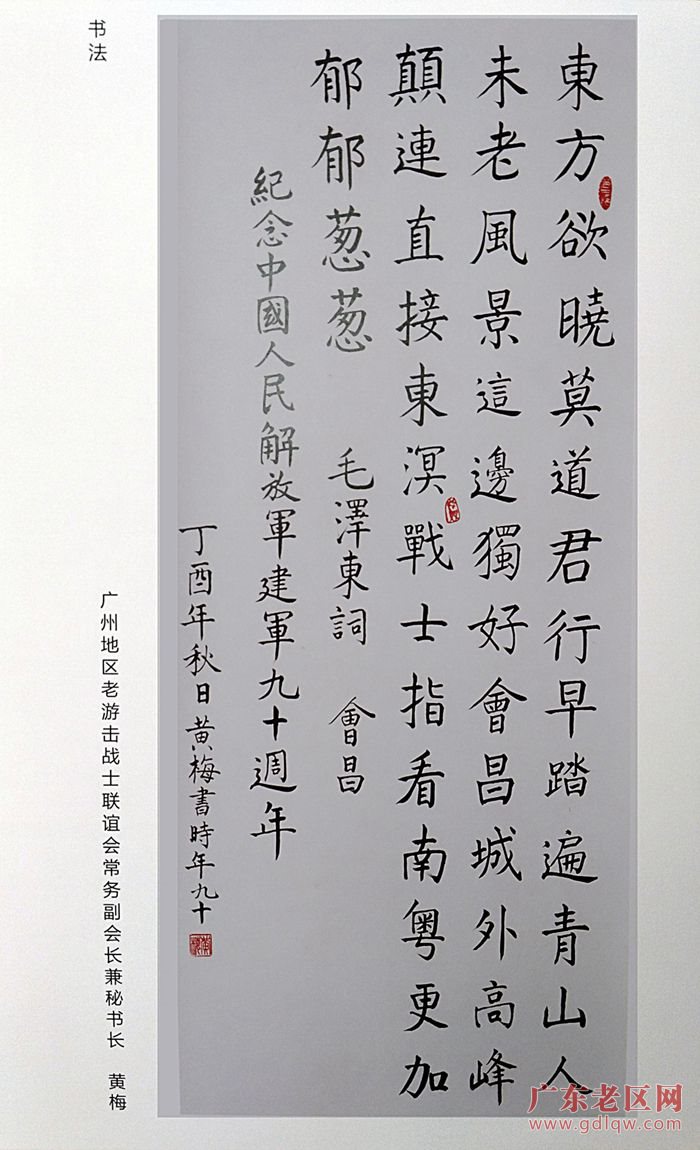 书法
東方欲曉莫道君行早踏遍青山人
未老風景這邊獨好會昌城外高峰
顛連直接東溟戰士指看南粤更加
郁郁葱葱　毛澤東詞　會昌
紀念中國人民解放軍建軍九十週年
丁酉年秋日黄梅書時年九十
广州地区老游击战士联谊会常务副会长兼秘书长　黄梅
广东老区网
www.gdlqw.com